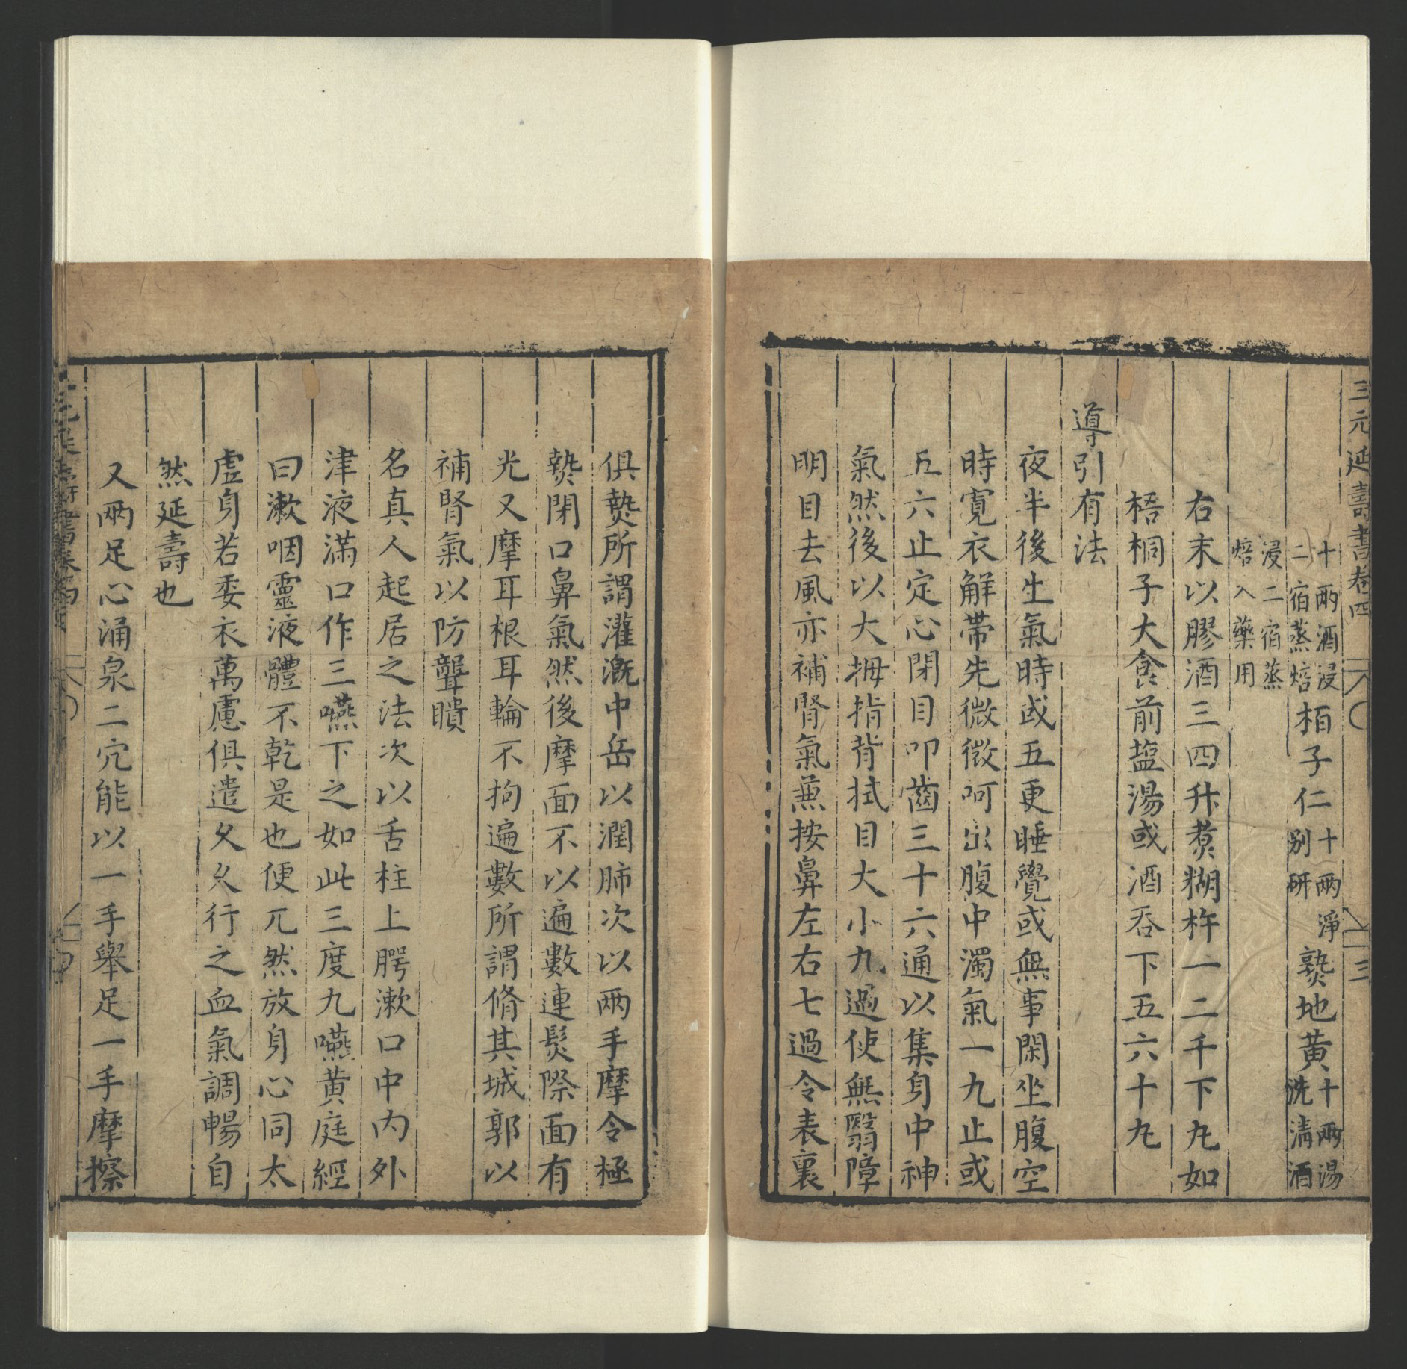 三元延壽書卷四
十兩酒浸
二宿蒸焙
栢子仁
二十兩淨
别研
熟地黄
十兩湯
洗清酒
浸二宿蒸
焙入藥用
右末以膠酒三四升煮糊杵一二千下丸如
梧桐子大食前塩湯或酒吞下五六十丸
導引有法
夜半後生氣時或五更睡覺或無事閑坐腹空
時寛衣解帶先微微呵出腹中濁氣一九止或
五六止定心閉目叩齒三十六通以集身中神
氣然後以大拇指背拭目大小九過使無翳障
明目去風亦補腎氣兼按鼻左右七過令表裏
俱熱所謂灌溉中岳以潤肺次以兩手摩令極
熱閉口鼻氣然後摩面不以遍數連髮際面有
光又摩耳根耳輪不拘遍數所謂脩其城郭以
補腎氣以防聾聵
名真人起居之法次以舌柱上腭漱口中内外
津液滿口作三嚥下之如此三度九嚥黄庭經
曰漱咽靈液體不乾是也便兀然放身心同太
虚身若委衣萬慮俱遣久久行之血氣調暢自
然延壽也
又兩足心涌泉二穴能以一手舉足一手摩擦